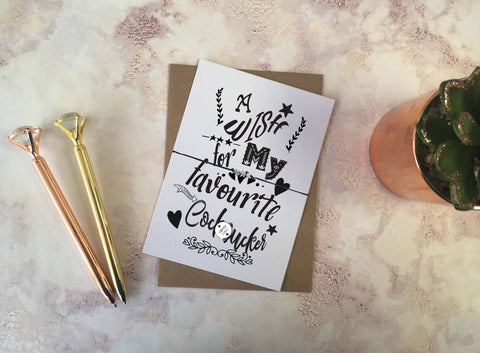 A
Wish
for My
favourite
Cocksucker